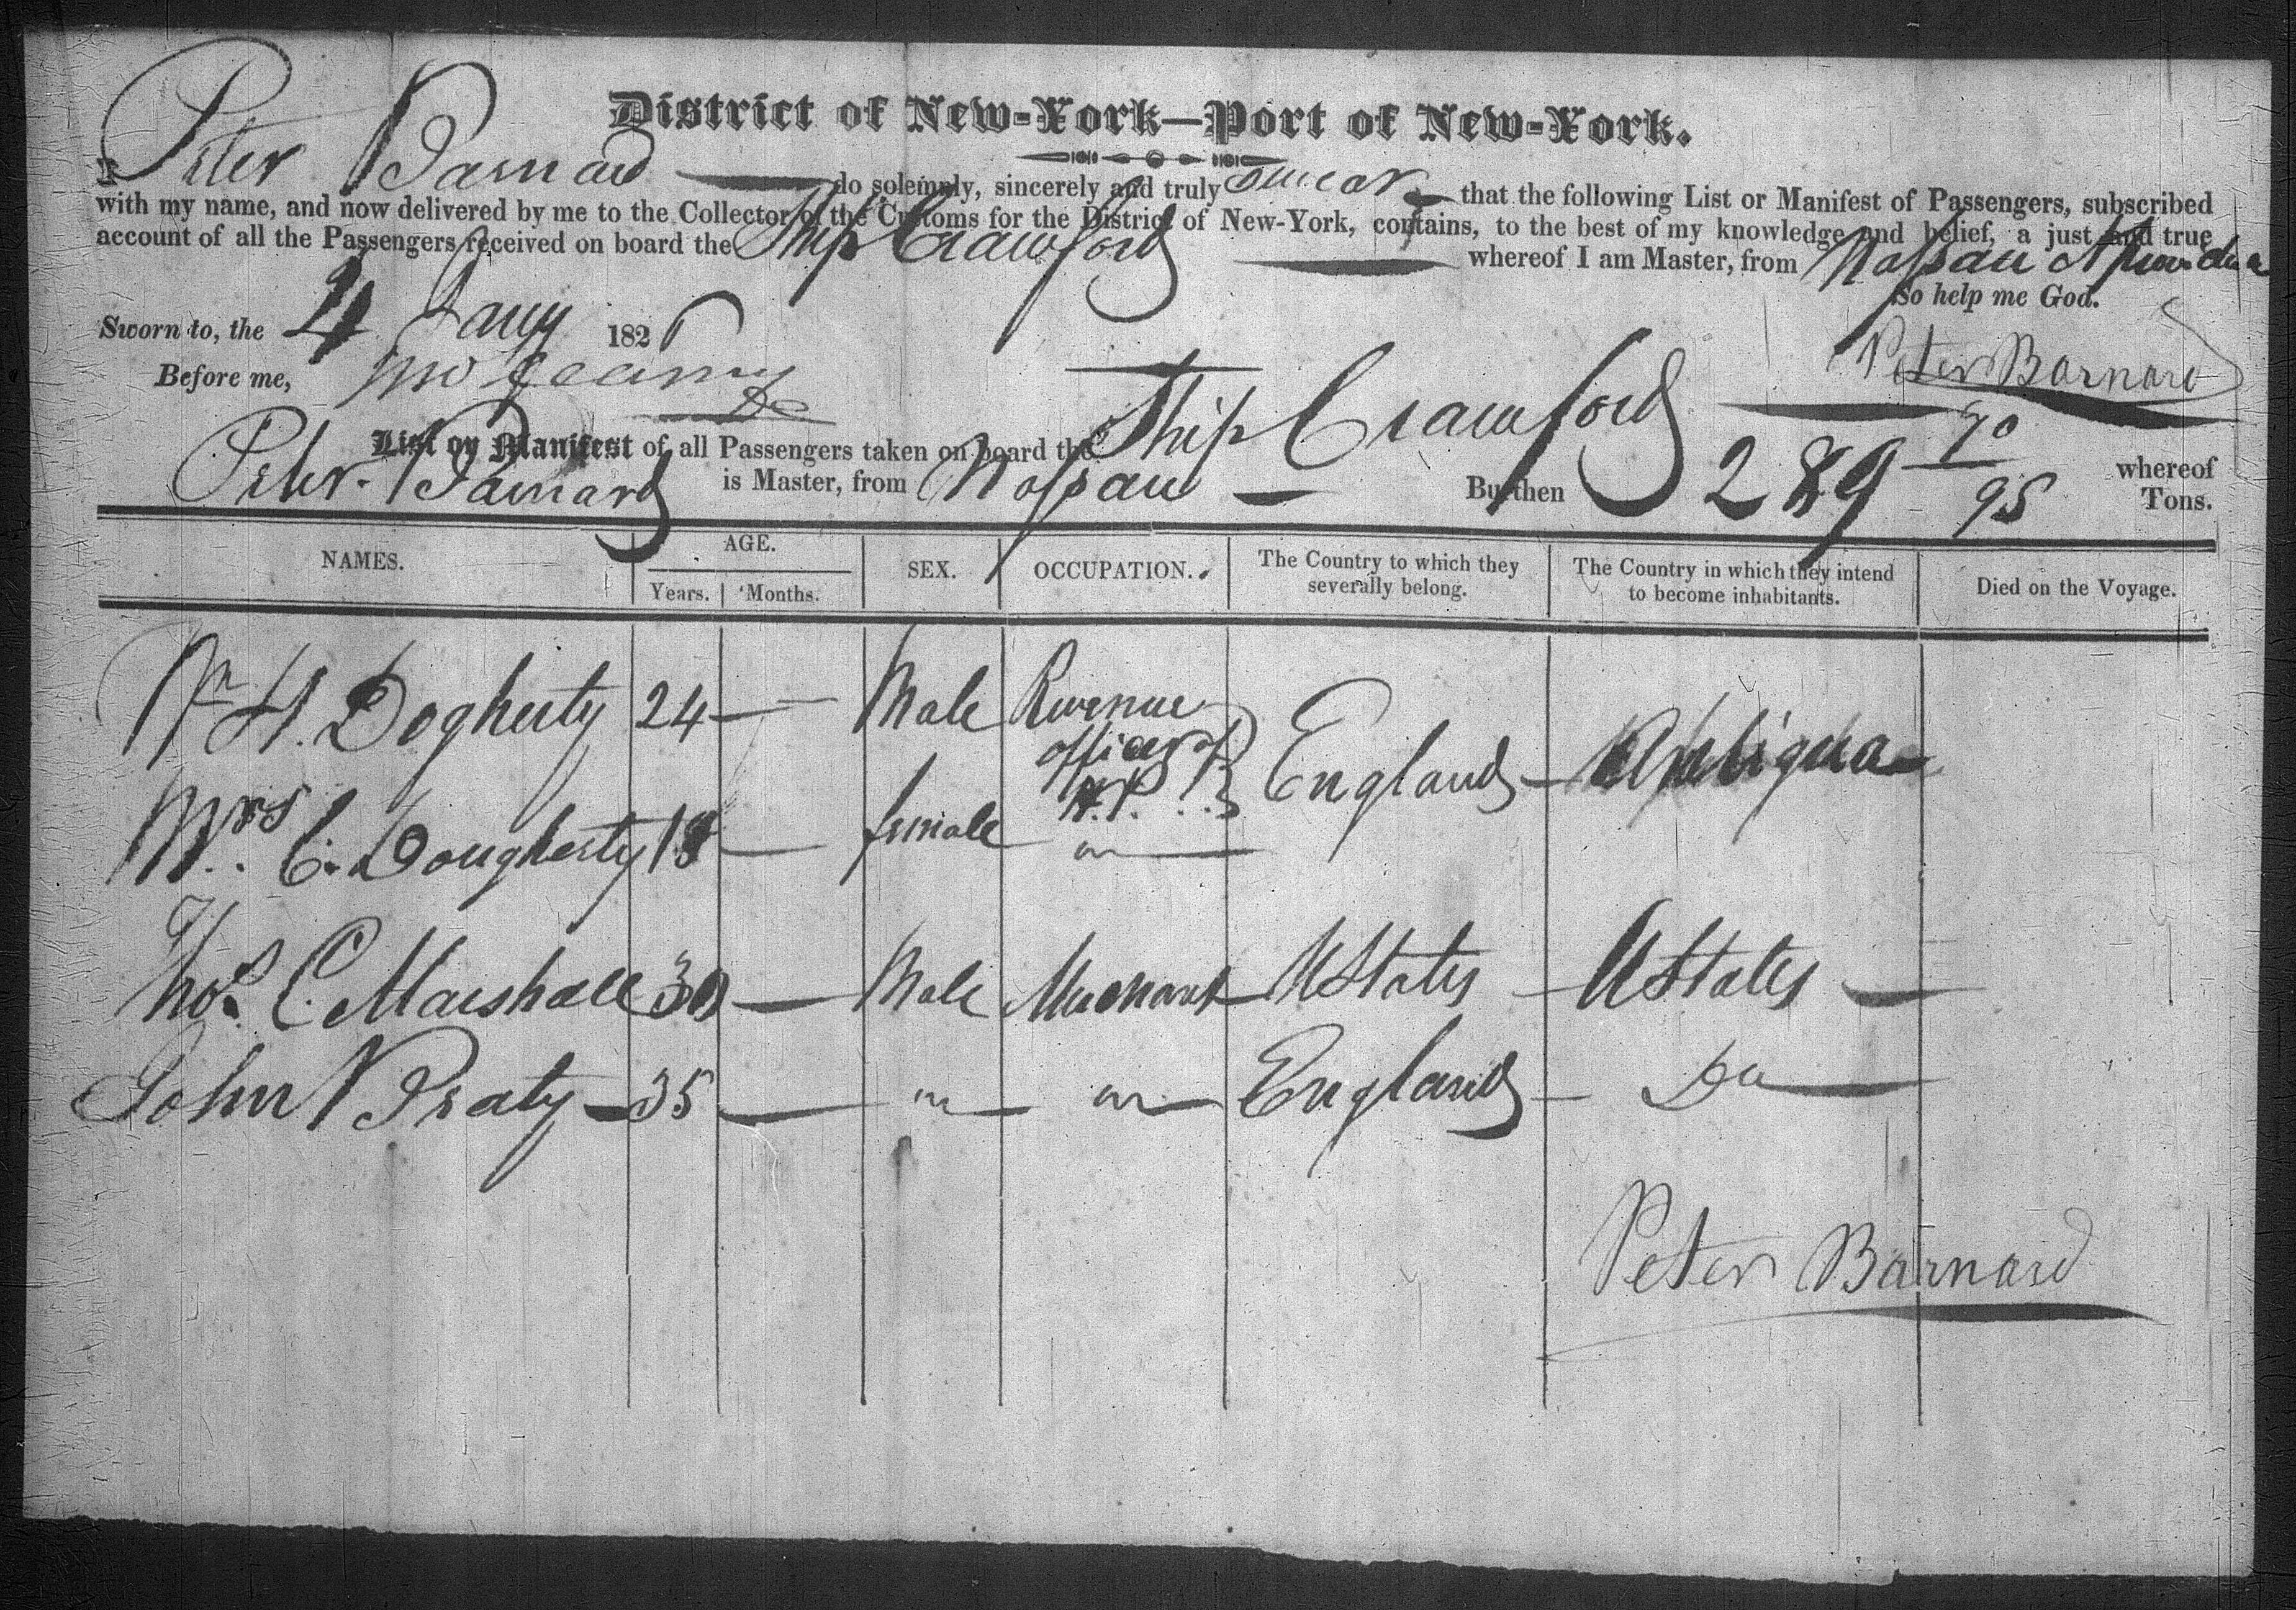 District of New-York—Port of New-York.
I Peter Barnard do solemnly, sincerely and truly swear that the following List or Manifest of Passengers, subscribed
with my name, and now delivered by me to the Collector of the Customs for the District of New-York, contains, to the best of my knowledge and belief, a just and true
account of all the Passengers received on board the Ship Crawford whereof I am Master, from Nassau N Providence
So help me God.
Sworn to, the 4 Jany 182
Before me,
Peter Barnard
List or Manifest of all Passengers taken on board the Ship Crawford whereof
Peter Barnard is Master, from Nassau Burthen 289 90/95 Tons.
NAMES. AGE. SEX. OCCUPATION. The Country to which they severally belong. The Country in which they intend to become inhabitants. Died on the Voyage.
Years. Months.
H. Dogherty 24 — Male Revenue officer of England Antigua
Mrs. C. Dougherty 18 — female "
Thos. C. Marshall 30 — Male Merchant U States U States
John Praty 35 — " " England Do
Peter Barnard